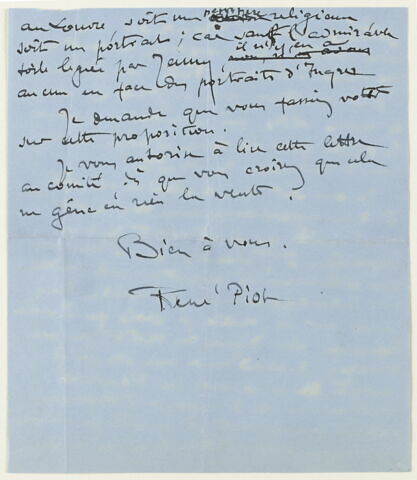 au Louvre soit un peinture religieux
soit un portrait ; car sauf l'admirable
toile léguée par Jamot, il n'y en a
aucun en face des portraits d'Ingres
Je demande que vous fassiez voter
sur cette proposition.
Je vous autorise à lire cette lettre
au comité si que vous croiez que cela
ne gêne en rien la vente.
Bien à vous.
René Piot